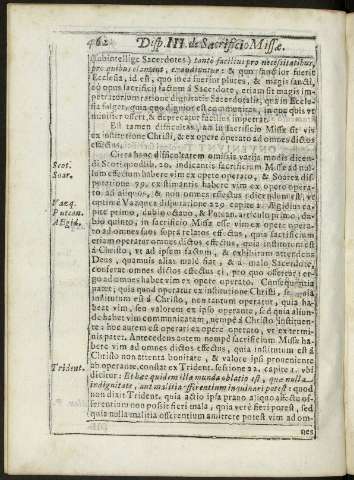 462 Disp. III. de Sacrificio Missæ.
(subintellige Sacerdotes) tantò facilius pro necessitatibus,
pro quibus clamant, exaudiuntur: & quò sanctior fuerit
Ecclesia, id est, quò in ea fuerint plures, & magis sancti,
eò opus sacrificij factum à Sacerdote, etiam sit magis im-
petratorium ratione dignitatis Sacerdotalis, qua in Eccle-
sia fulget, quia quo dignior est communitas, in cuius quis ut
minister offert, & deprecatur facilius impetrat.
Est tamen difficultas, an in sacrificio Missæ sit vis
ex institutione Christi, & ex opere operato ad omnes dictos
effectus.
Circa hanc difficultatem omissis varijs modis dicen-
Scot. di Scot. quodlib. 20. indicantis sacrificium Missæ ad nul-
Soar. lum effectum habere vim ex opere operato, & Soarez dis-
putatione 79. existimantis habere vim ex opere opera-
to ad aliquos, & non omnes effectus; dicendum est, ut
Vazq. optimè Vazquez disputatione 229. capite 2. Ægidius ca-
Putean. pite primo, dubio octavo, & Putean. articulo primo, du-
Ægid. bio quinto, in sacrificio Missæ esse vim ex opere opera-
to ad omnes suos supra relatos effectus, quia sacrificium
etiam operatur omnes dictos effectus, quia institutum est
à Christo, ut ad ipsum factum, & exhibitum attendens
Deus, quamuis aliàs malè fiat, & à malo Sacerdote,
conferat omnes dictos effectus ei, pro quo offertur: er-
go ad omnes habet vim ex opere operato. Consequentia
patet; quia quod operatur ex institutione Christi,
institutum est à Christo, non tantum operatur, quia ha-
beat vim, seu valorem ex ipso operante, sed quia aliun-
de habet vim communicatam, nempè à Christo instituen-
te: hoc autem est operari ex opere operato, ut ex termi-
nis patet. Antecedens autem nempè sacrificium Missæ ha-
bere vim ad omnes dictos effectus, quia institutum est à
Christo non attenta bonitate, & valore ipsi proveniente
Trident. ab operante, constat ex Trident. sessione 22. capite 1. ubi
dicitur: Et hæc quidem illa munda oblatio est, quæ nulla
indignitate, aut malitia offerentium inquinari potest: quod
non dixit Trident. quia actio ipsa prava aliquo affectu of-
ferentium non possit fieri mala, quia verè fieri potest, sed
quia nulla malitia offerentium amittere potest vim ad om-
nes